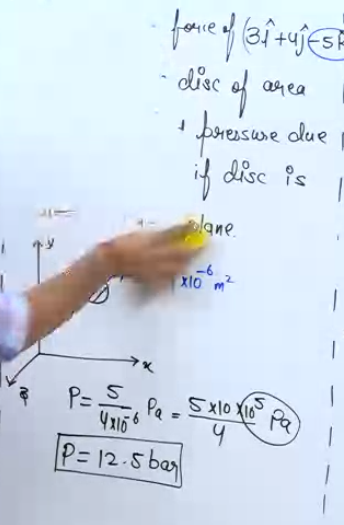 force of (3î+4ĵ-5k
disc of area
pressure due
if disc is
plane.
×10⁻⁶ m²
y
x
P = 5/(4×10⁻⁶) Pa = (5×10×10⁵)/4 Pa
P = 12.5 bar